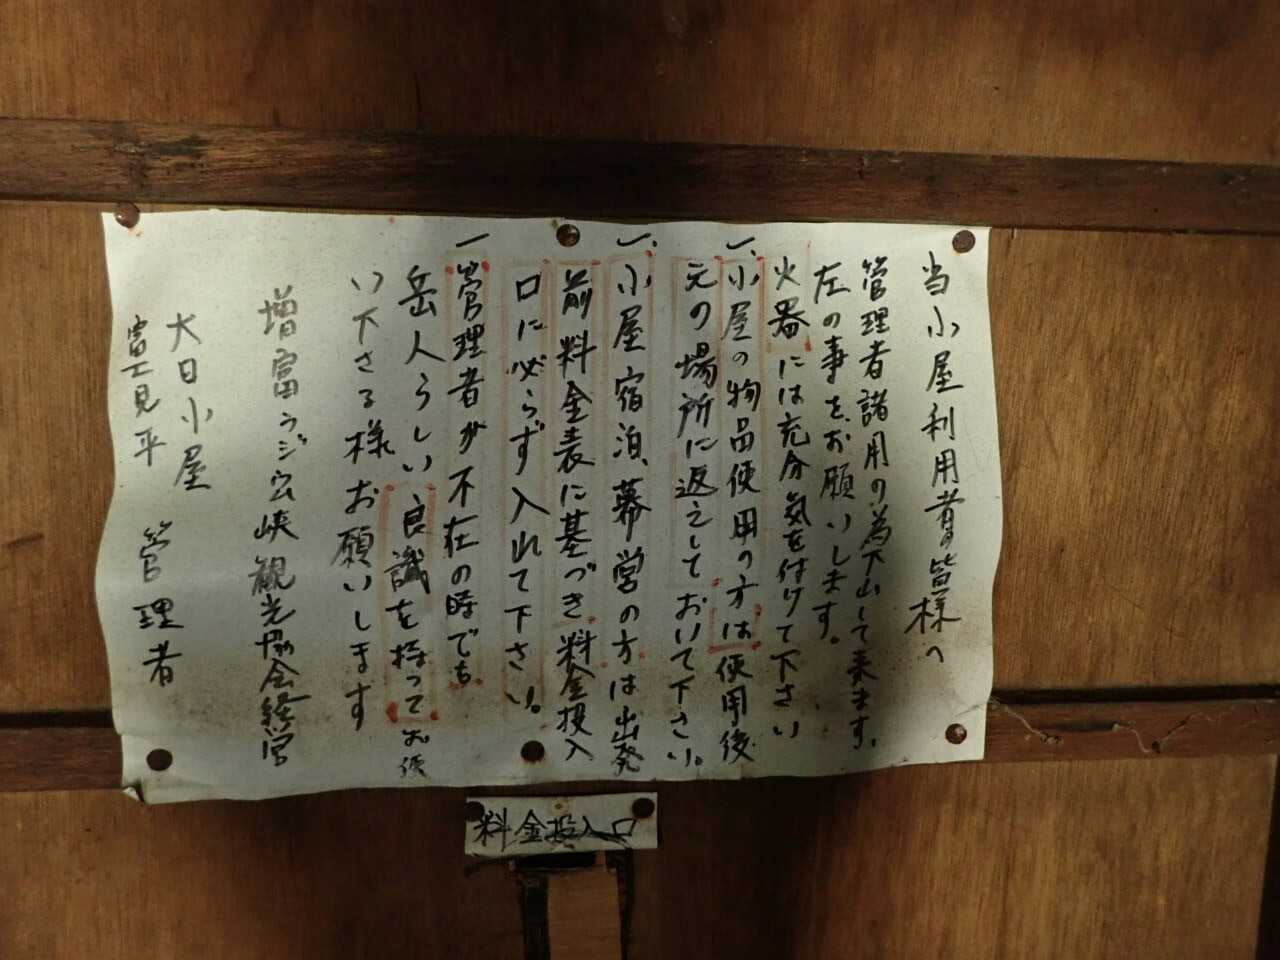 当小屋利用者の皆様へ
管理者諸用の為下山して来ます。
左の事を、お願いします。
火器には充分気を付けて下さい
一、小屋の物品使用の方は使用後
元の場所に返えしておいて下さい。
一、小屋宿泊、幕営の方は出発
前料金表に基づき料金投入
口に必らず入れて下さい。
一管理者が不在の時でも
岳人らしい良識を持ってお使
い下さる様お願いします
増富ラジウム峡観光協会経営
大日小屋
富士見平 管理者
料金投入口